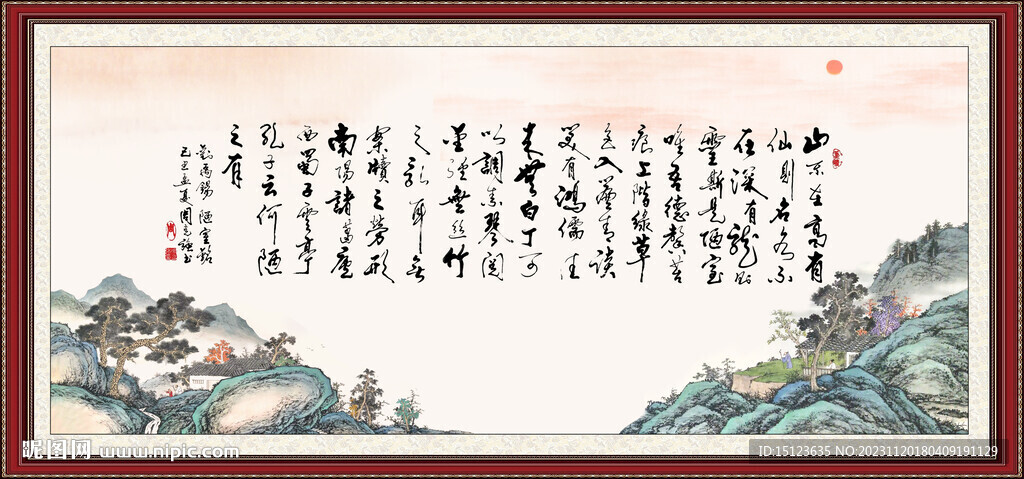 山不在高有
仙則名水不
在深有龍則
靈斯是陋室
唯吾德馨苔
痕上階緑草
色入簾青談
笑有鴻儒往
来無白丁可
以調素琴閱
金經無丝竹
之亂耳無
案牘之勞形
南陽諸葛廬
西蜀子雲亭
孔子云何陋
之有
劉禹錫 陋室銘
昵图网 www.nipic.com
ID:15123635 NO:20231120180409191129